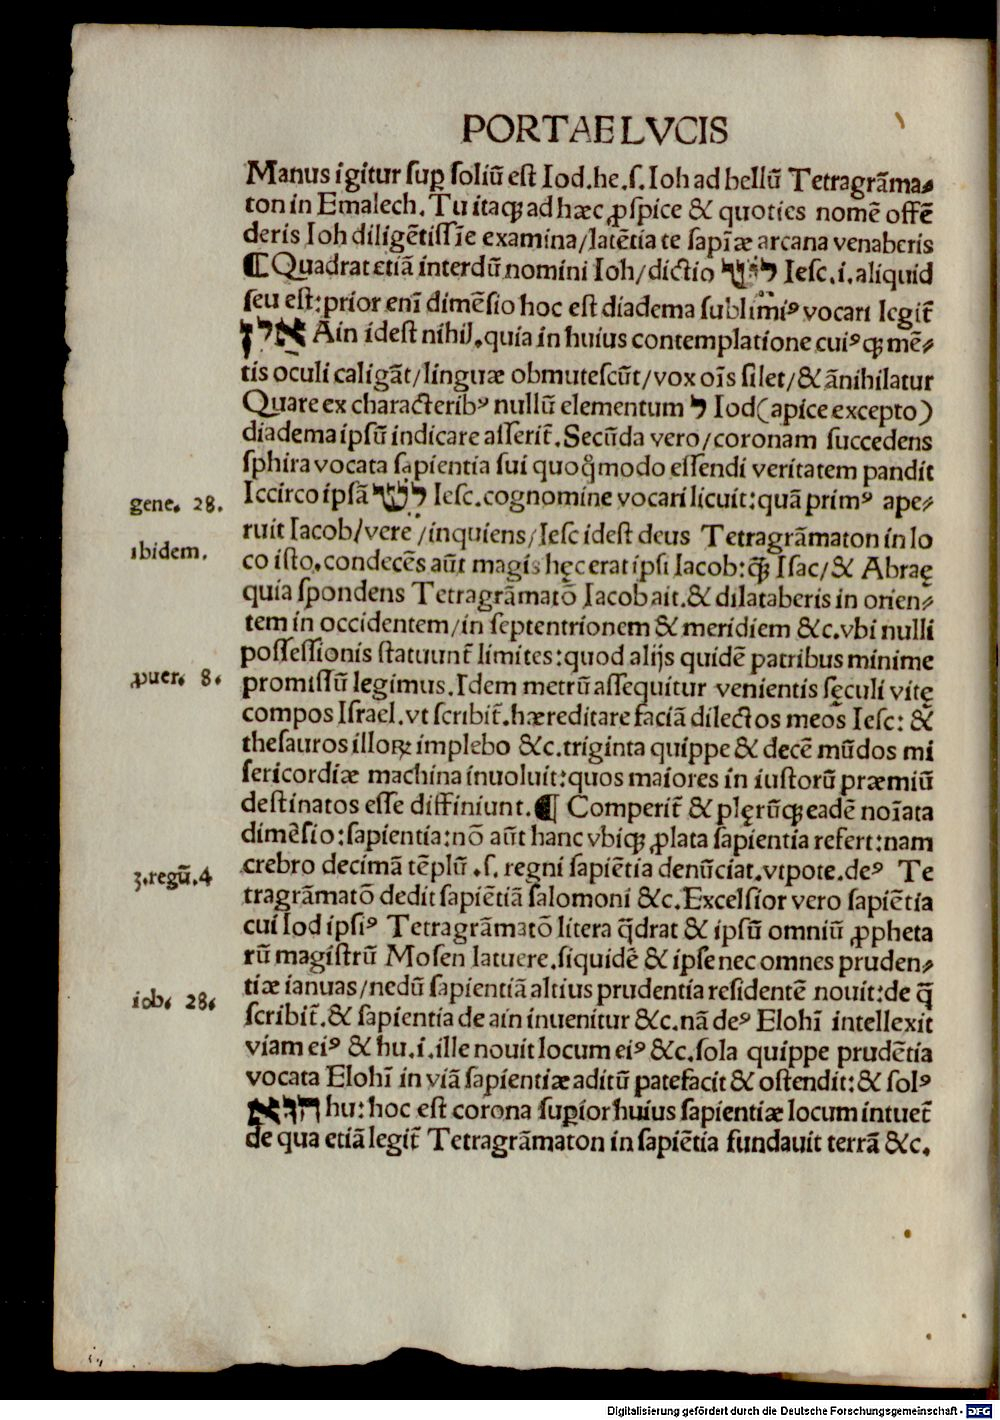 PORTAE LVCIS
Manus igitur suꝑ soliū est Iod.he.s.Ioh ad bellū Tetragrāma⸗
ton in Emalech. Tu itaqꝫ ad hæc ꝓspice & quoties nomē offē
deris Ioh diligētissīe examina/latētia te sapīæ arcana venaberis
¶ Quadrat etiā interdū nomini Ioh/dictio Iesc.i.aliquid
seu est:prior enī dimēsio hoc est diadema sublimiꝰ vocari legit̄
Ain idest nihil.quia in huius contemplatione cuiꝰqꝫ mē⸗
tis oculi caligāt/linguæ obmutescūt/vox oīs silet/& ānihilatur
Quare ex characteribꝰ nullū elementum י Iod(apice excepto)
diadema ipsū indicare asserit̄. Secūda vero/coronam succedens
sphira vocata sapientia sui quoqͦmodo essendi veritatem pandit
gene. 28.
Iccirco ipsā Iesc.cognomine vocari licuit:quā primꝰ ape⸗
ruit Iacob/vere/inquiens/Iesc idest deus Tetragrāmaton in lo
ibidem.
co isto.condecēs aūt magis hęc erat ipsi Iacob:qꝫ̄ Isac/& Abraę
quia spondens Tetragrāmatō Iacob ait.& dilataberis in orien⸗
tem in occidentem/in septentrionem & meridiem &c.vbi nulli
possessionis statuunt̄ limites:quod alijs quidē patribus minime
ꝓuer. 8.
promissū legimus.Idem metrū assequitur venientis sęculi vitę
compos Israel.vt scribit̄.hæreditare faciā dilectos meos Iesc: &
thesauros illoꝝ implebo &c.triginta quippe & decē mūdos mi
sericordiæ machina inuoluit:quos maiores in iustorū præmiū
destinatos esse diffiniunt.¶ Comperit̄ & plęrūqꝫ eadē noīata
dimēsio:sapientia:nō aūt hanc vbiqꝫ ꝓlata sapientia refert:nam
3.regū.4
crebro decimā tēplū .s. regni sapiētia denūciat.vtpote.deꝰ Te
tragrāmatō dedit sapiētiā salomoni &c.Excelsior vero sapiētia
cui Iod ipsiꝰ Tetragrāmatō litera q̄drat & ipsū omniū ꝓpheta
rū magistrū Mosen latuere.siquidē & ipse nec omnes pruden⸗
iob. 28.
tiæ ianuas/nedū sapientiā altius prudentia residentē nouit:de q̄
scribit̄.& sapientia de ain inuenitur &c.nā deꝰ Elohī intellexit
viam eiꝰ & hu.i.ille nouit locum eiꝰ &c.sola quippe prudētia
vocata Elohī in viā sapientiæ aditū patefacit & ostendit:& solꝰ
הוא hu: hoc est corona suꝑior huius sapientiæ locum intuet̄
de qua etiā legit̄ Tetragrāmaton in sapiētia fundauit terrā &c.
Digitalisierung gefördert durch die Deutsche Forschungsgemeinschaft - DFG